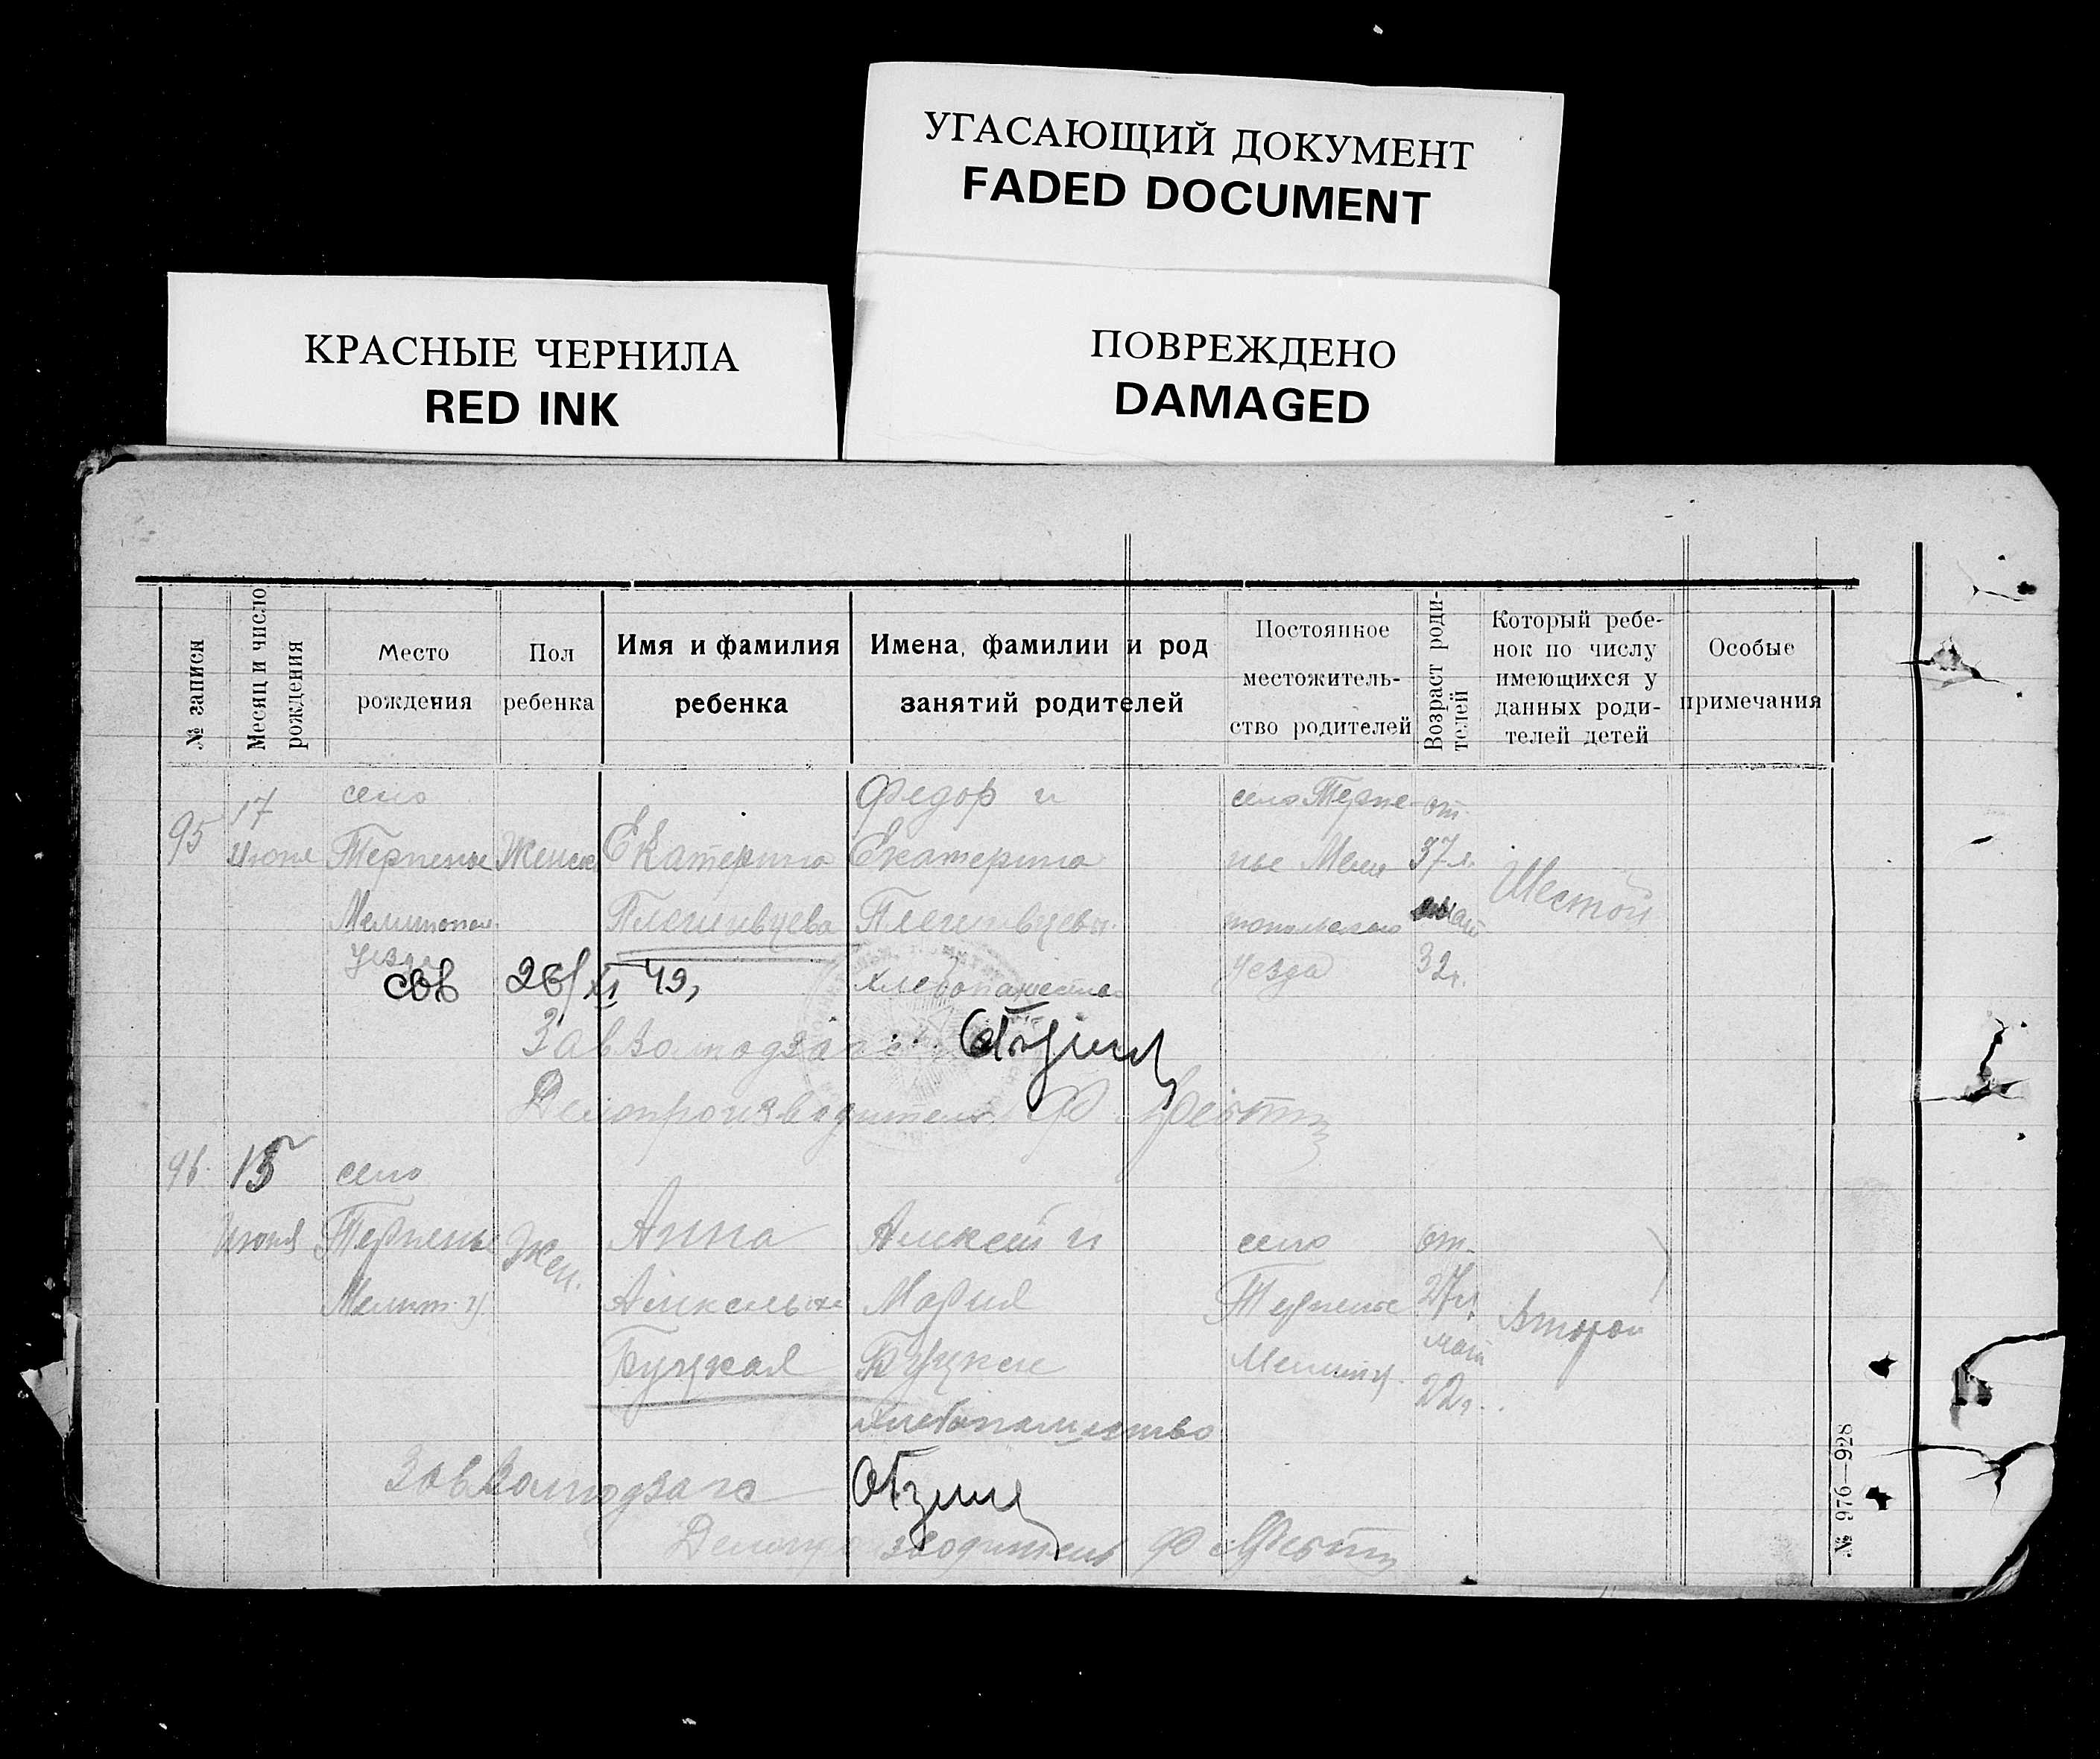 УГАСАЮЩИЙ ДОКУМЕНТ
FADED DOCUMENT
КРАСНЫЕ ЧЕРНИЛА
RED INK
ПОВРЕЖДЕНО
DAMAGED
№ записи
Месяц и число рождения
Место рождения
Пол ребенка
Имя и фамилия ребенка
Имена, фамилии и род занятий родителей
Постоянное местожительство родителей
Возраст родителей
Который ребенок по числу имеющихся у данных родителей детей
Особые примечания
95
17
Июня
село
Терпенье
Мелитопол.
уезда
Женск
Екатерина
Федор и
Екатерина
хлебопашество
село Терпе-
нье Мели
топольского
уезда
от
37 л.
мат
32 г.
Шестой
26/XI 49,
Завволподзагс
Делопроизводитель Ф
96
15
Июня
село
Терпенье
Мелит. у.
Жен.
Анна
Алексеевна
Буцкая
Алексей и
Мария
Буцкие
хлебопашество
село
Терпенье
Мелит у.
от.
27 л.
мат
22 г.
Второй
Завволподзагс
Делопроизводитель Ф
№ 976—928